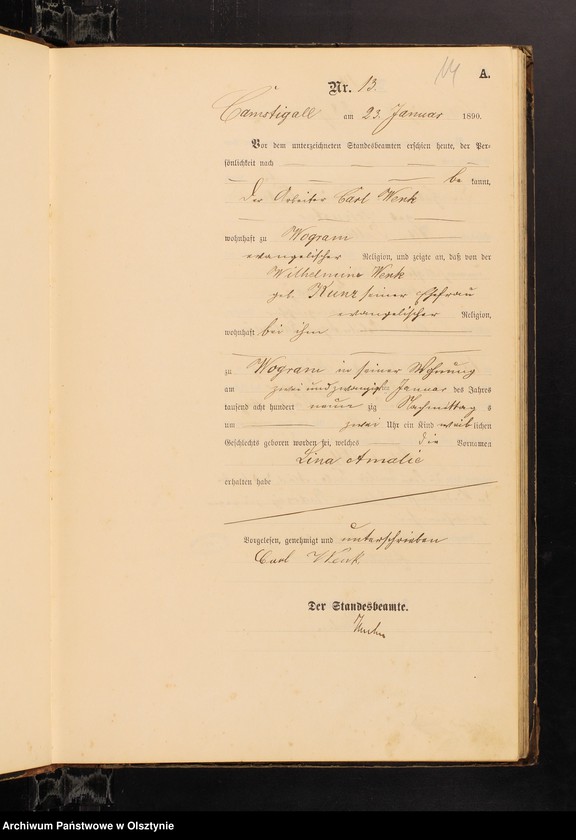 14
A.
Nr. 13.
Camstigall am 23. Januar 1890.
Vor dem unterzeichneten Standesbeamten erschien heute, der Per-
sönlichkeit nach
be kannt,
der Arbeiter Carl Wenk
wohnhaft zu Wogram
evangelischer Religion, und zeigte an, daß von der
Wilhelmine Wenk
geb. Kunz seiner Ehefrau
evangelischer Religion,
wohnhaft bei ihm
zu Wogram in seiner Wohnung
am zwei und zwanzigsten Januar des Jahres
tausend acht hundert neun zig Nachmittag s
um zwei Uhr ein Kind weib lichen
Geschlechts geboren worden sei, welches die Vornamen
Lina Amalie
erhalten habe
Vorgelesen, genehmigt und unterschrieben
Carl Wenk
Der Standesbeamte.
Archiwum Państwowe w Olsztynie